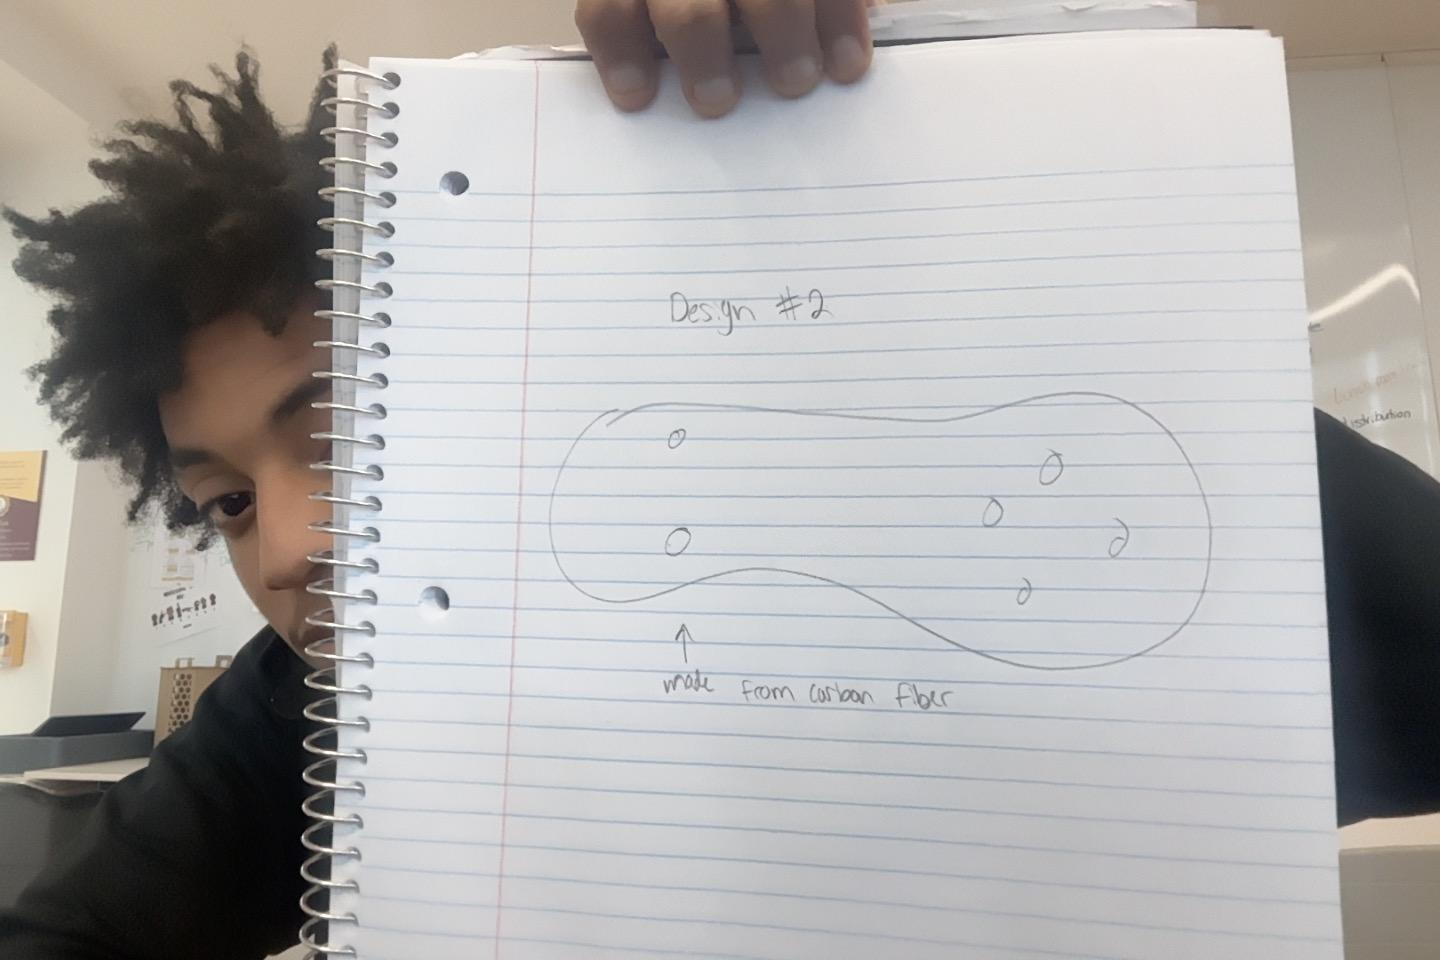 Design #2
made from carbon fiber
distribution